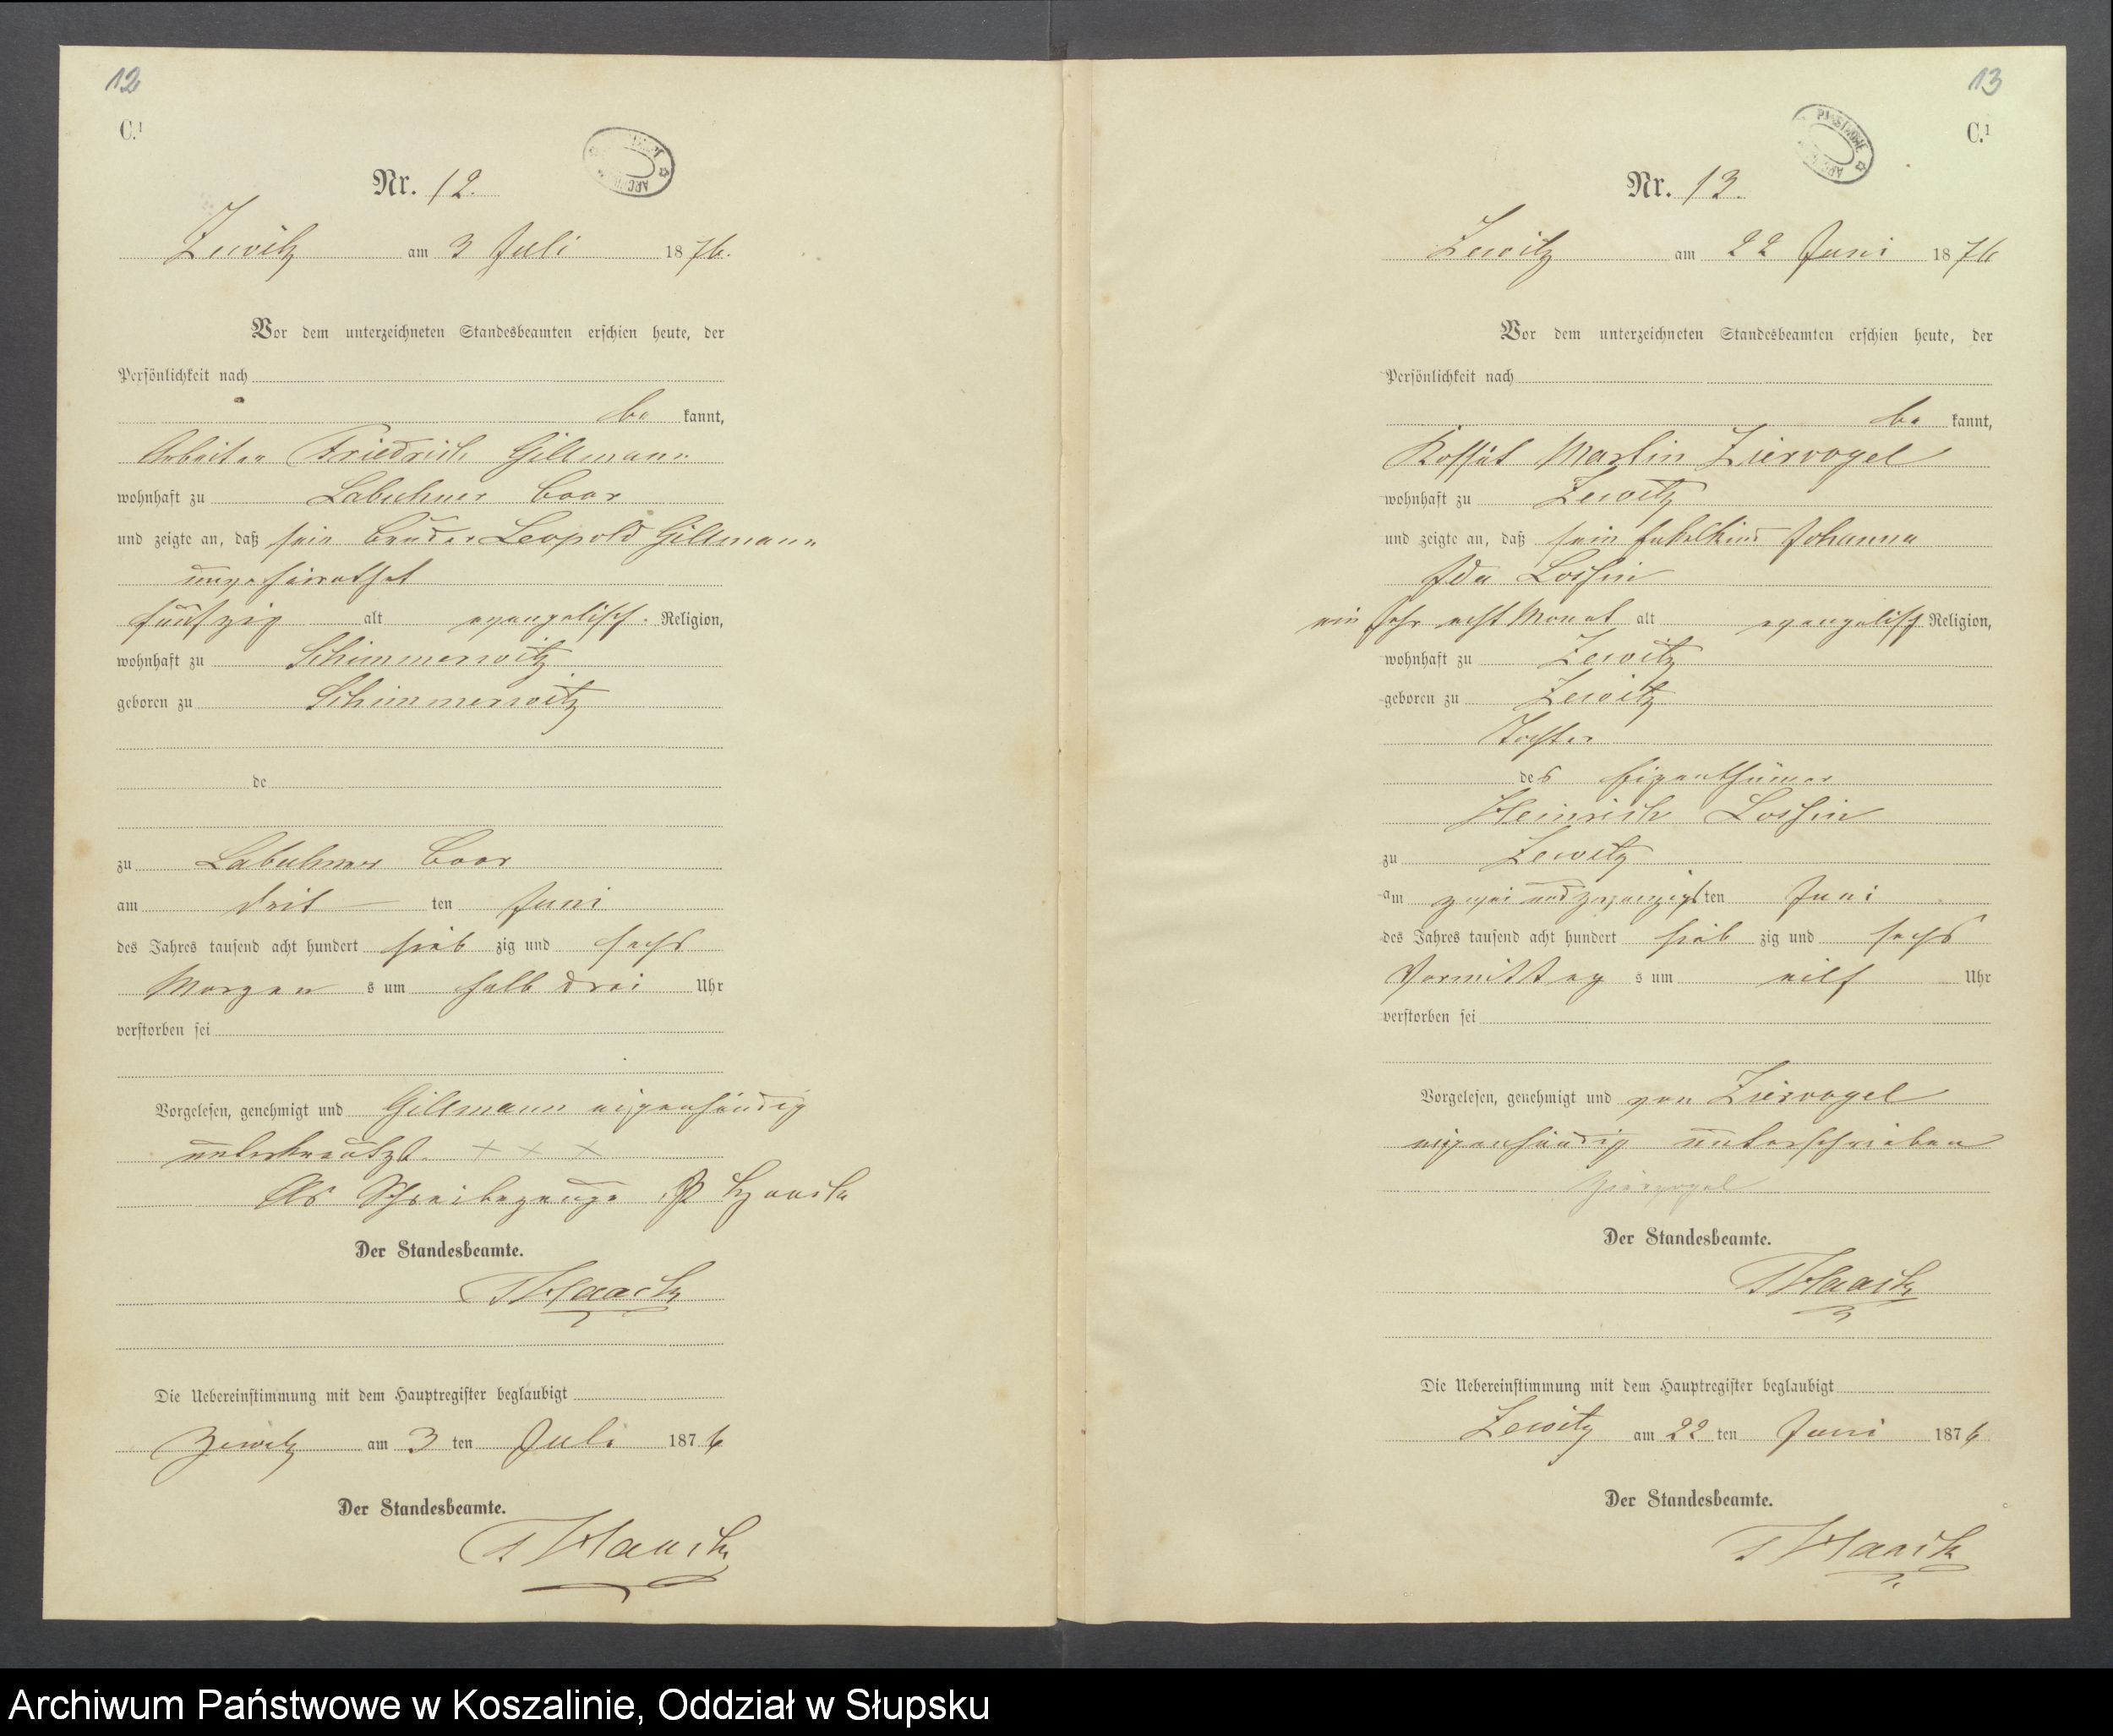 12
C.¹
Nr. 12.
Zewitz am 3 Juli 1876.
Vor dem unterzeichneten Standesbeamten erschien heute, der
Persönlichkeit nach
be kannt,
Arbeiter Friedrich Gillmann
wohnhaft zu Labuhner Coor
und zeigte an, daß sein Bruder Leopold Gillmann
ungeheirathet
fünfzig alt evangelisch. Religion,
wohnhaft zu Schimmerwitz
geboren zu Schimmerwitz
de
zu Labuhner Coor
am drit ten Juni
des Jahres tausend acht hundert sieb zig und sechs
Morgen s um halb drei Uhr
verstorben sei
Vorgelesen, genehmigt und Gillmann eigenhändig
unterkreutzt. × × ×
Als Schreibezeuge
Der Standesbeamte.
Haack
Die Uebereinstimmung mit dem Hauptregister beglaubigt
Zewitz am 3 ten Juli 1876
Der Standesbeamte.
Haack
13
C.¹
PAŃSTWOWE
Nr. 13.
Zewitz am 22 Juni 1876
Vor dem unterzeichneten Standesbeamten erschien heute, der
Persönlichkeit nach
be kannt,
Kossät Martin Ziervogel
wohnhaft zu Zewitz
und zeigte an, daß sein Enkelkind Johanna
Ida Loshin
ein Jahr acht Monat alt evangelisch Religion,
wohnhaft zu Zewitz
geboren zu Zewitz
Tochter
des Eigenthümer
Heinrich Loshin
zu Zewitz
am zwei und zwanzigsten Juni
des Jahres tausend acht hundert sieb zig und sechs
Vormittag s um eilf Uhr
verstorben sei
Vorgelesen, genehmigt und von Ziervogel
eigenhändig unterschrieben
Ziervogel
Der Standesbeamte.
Haack
Die Uebereinstimmung mit dem Hauptregister beglaubigt
Zewitz am 22 ten Juni 1876
Der Standesbeamte.
Haack
Archiwum Państwowe w Koszalinie, Oddział w Słupsku